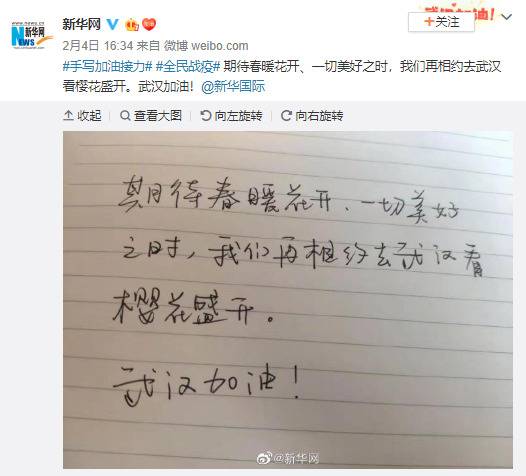 武汉加油!
新华网
www.news.cn
NEWS
新华网
+关注
2月4日 16:34 来自 微博 weibo.com
#手写加油接力# #全民战疫# 期待春暖花开、一切美好之时，我们再相约去武汉
看樱花盛开。武汉加油！@新华国际
收起 查看大图 向左旋转 向右旋转
期待春暖花开、一切美好
之时，我们再相约去武汉看
樱花盛开。
武汉加油！
@新华网